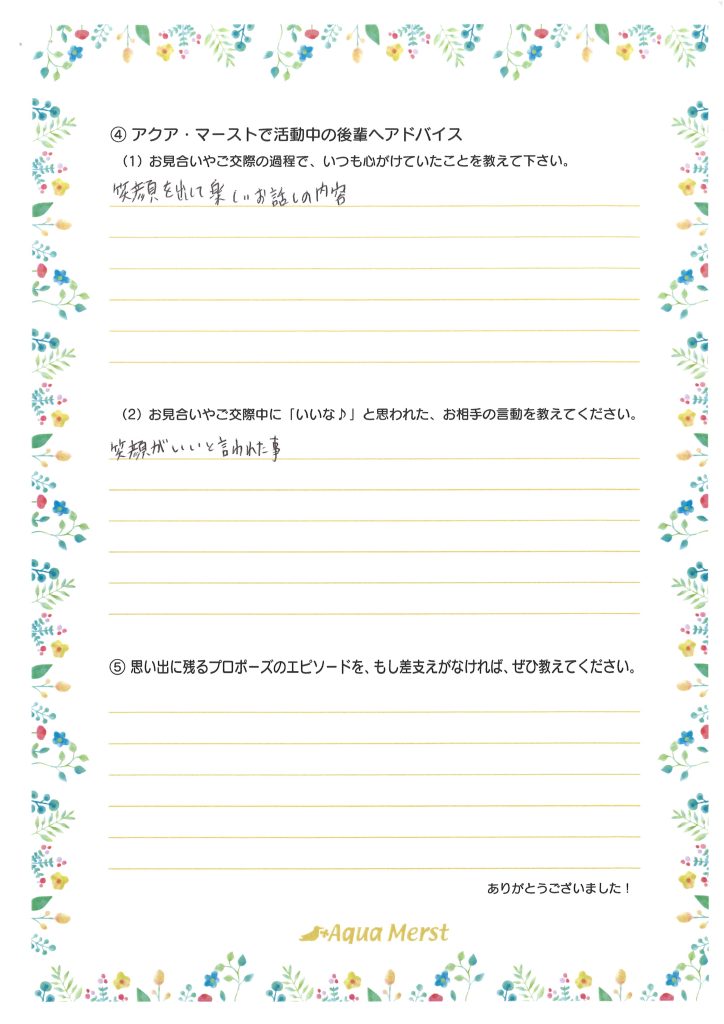 ④ アクア・マーストで活動中の後輩へアドバイス
（1）お見合いやご交際の過程で、いつも心がけていたことを教えて下さい。
笑顔を出して楽しいお話しの内容
（2）お見合いやご交際中に「いいな♪」と思われた、お相手の言動を教えてください。
笑顔がいいと言われた事
⑤ 思い出に残るプロポーズのエピソードを、もし差支えがなければ、ぜひ教えてください。
ありがとうございました！
Aqua Merst